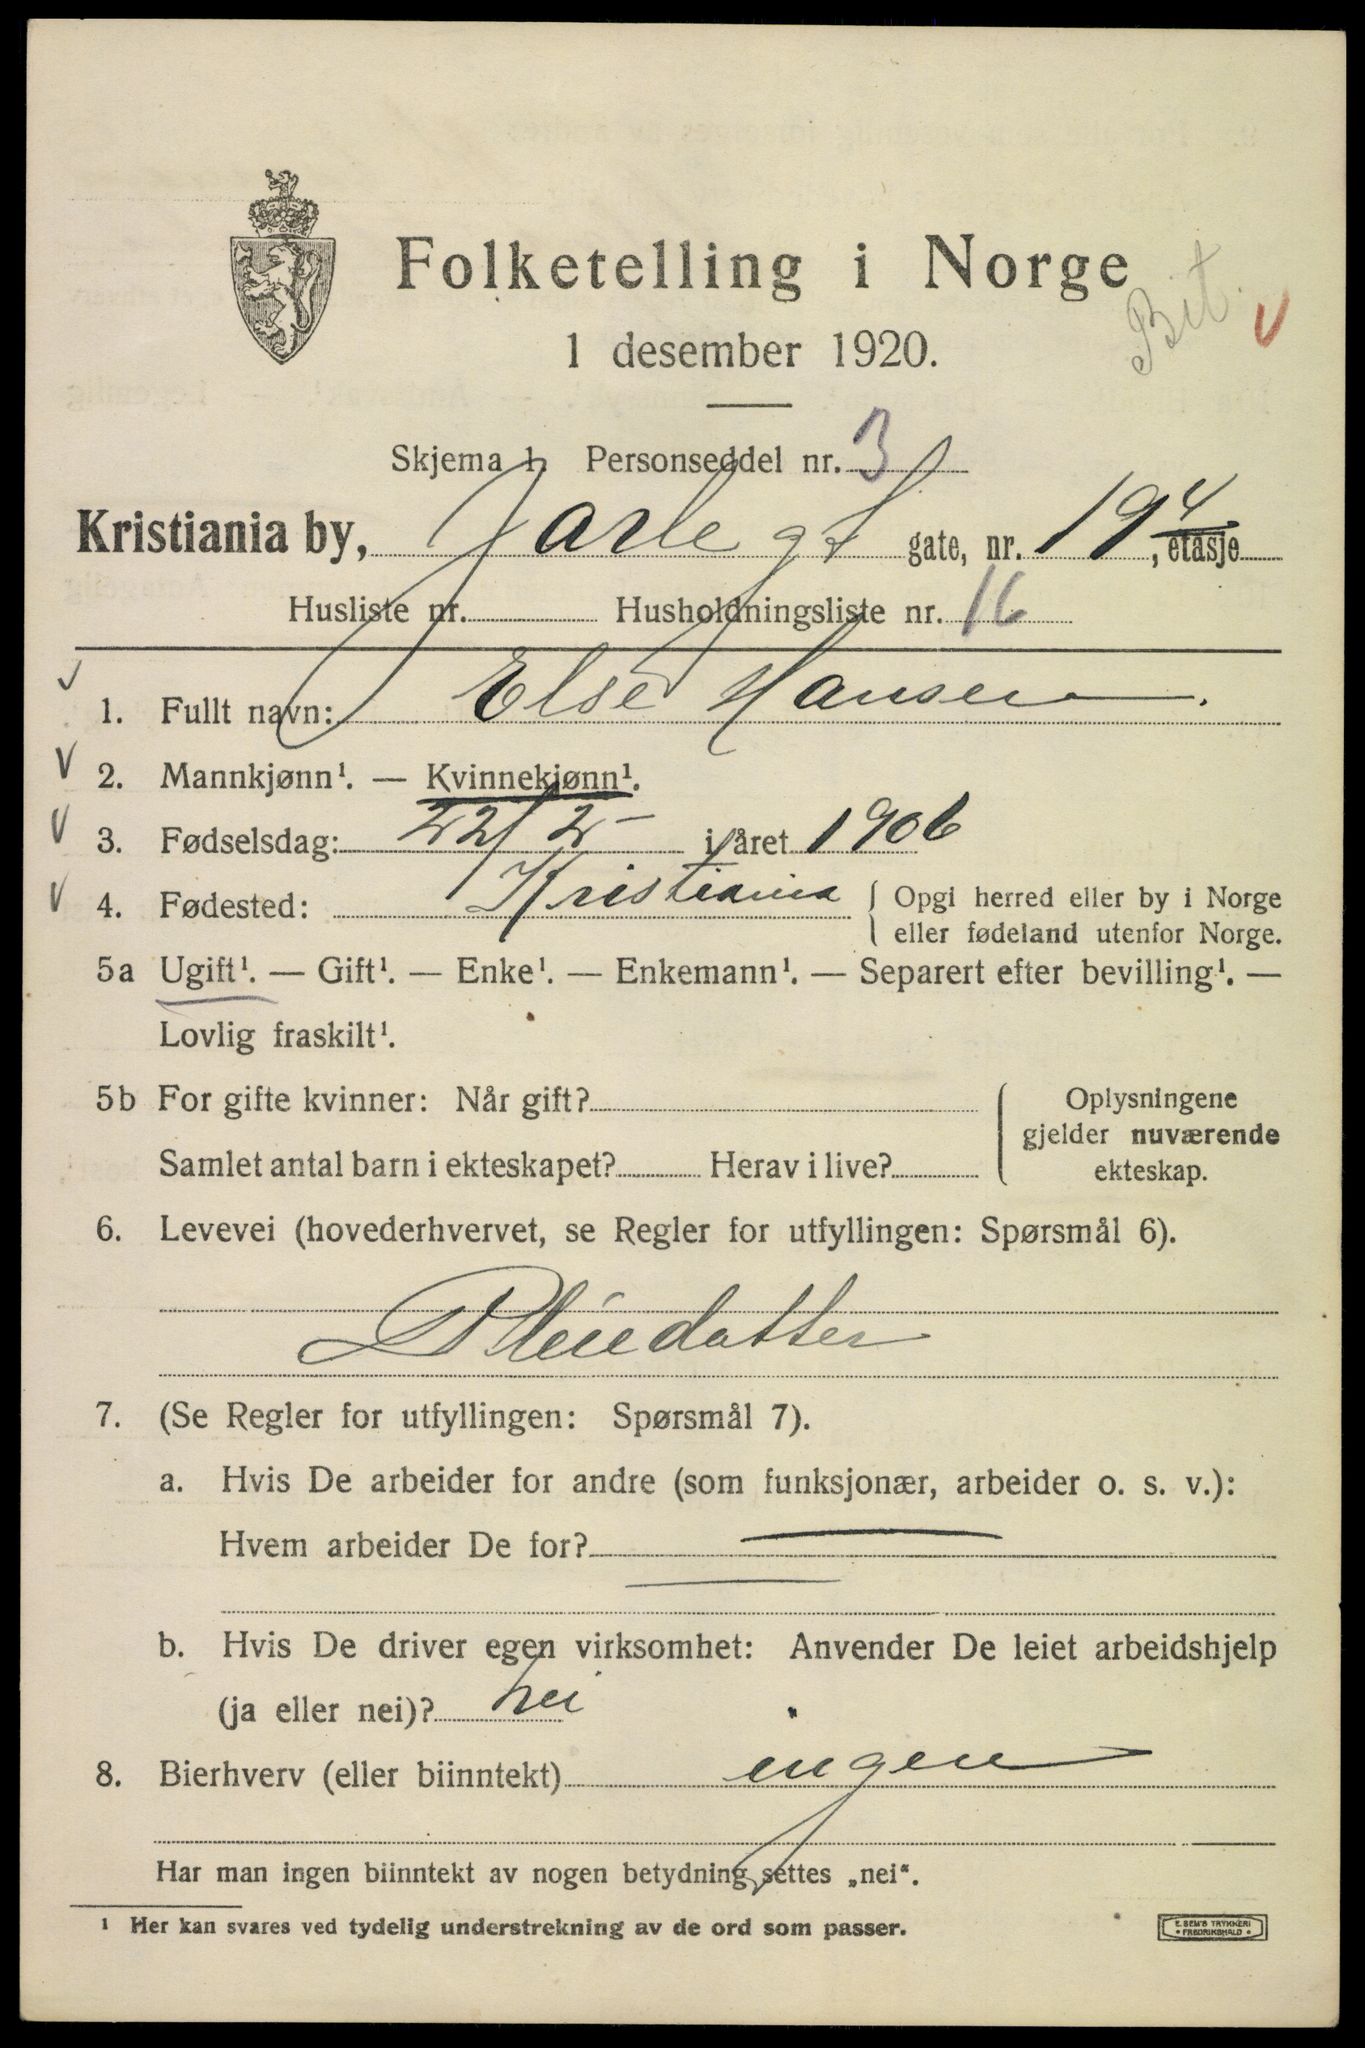 Folketelling i Norge
Bit.
1 desember 1920.
Skjema 1. Personseddel nr. 3
Kristiania by, Jarlegt gate, nr. 19, 4 etasje
Husliste nr. Husholdningsliste nr. 16
1. Fullt navn: Else Hansen.
2. Mannkjønn¹. — Kvinnekjønn¹.
3. Fødselsdag: 22/2- i året 1906
4. Fødested: Kristiania { Opgi herred eller by i Norge
eller fødeland utenfor Norge.
5a Ugift¹. — Gift¹. — Enke¹. — Enkemann¹. — Separert efter bevilling¹. —
Lovlig fraskilt¹.
5b For gifte kvinner: Når gift? Oplysningene
gjelder nuværende
Samlet antal barn i ekteskapet? Herav i live? ekteskap.
6. Levevei (hovederhvervet, se Regler for utfyllingen: Spørsmål 6).
Pleiedatter
7. (Se Regler for utfyllingen: Spørsmål 7).
a. Hvis De arbeider for andre (som funksjonær, arbeider o. s. v.):
Hvem arbeider De for? —
b. Hvis De driver egen virksomhet: Anvender De leiet arbeidshjelp
(ja eller nei)? nei
8. Bierhverv (eller biinntekt) ingen
Har man ingen biinntekt av nogen betydning settes „nei“.
¹ Her kan svares ved tydelig understrekning av de ord som passer.
E. SEM'S TRYKKERI
• FREDRIKSHALD •